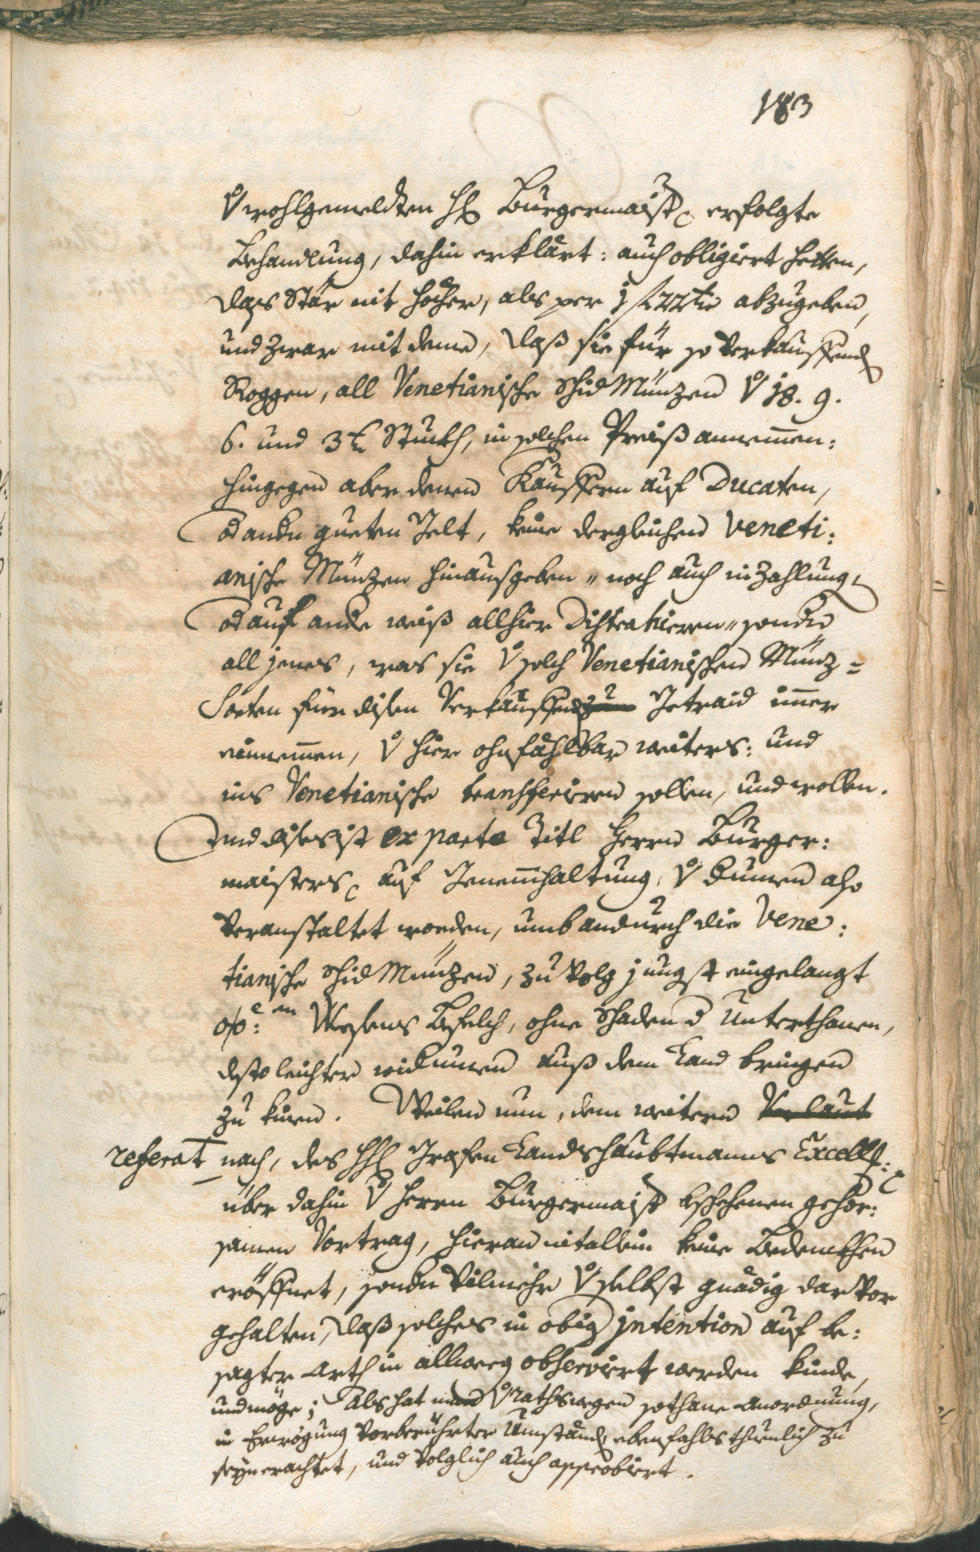 183
V wohlgemeldten H: Burgermaist: erfolgte
Behandlung, dahin erklärt: auch obligiert hetten,
das Stär nit höcher, als per abzugeben,
und zwar mit deme, daß sie für so verkauffend
Roggen, all Venetianische Schid Münzen V 18. 9.
6. und 3 Stuckh, in solchen Preiß annemmen:
hingegen aber denen Kauffern auf Ducaten,
od andn gueten Gelt, keine dergleichen Veneti:
anische Münzen hinausgeben, noch auch in Zahlung,
od auf ande weiß allhier distrahieren, sondn
all jenes, was sie V solch Venetianischen Münz=
Sorten für disen verkauffend Getraid immer
einnemmen, V hier ohnfählbar weiters: und
ins Venetianische transferiren sollen, und wollen.
Und dises ist ex parte Titl Herrn Burger:
maisters, auf Genemmhaltung, V darumen also
veranstaltet worden, umb andurch die Vene:
tianische Schid Münzen, zu volg jüngst eingelangt
Wesens Befelch, ohne Schaden d Unterthanen,
desto leichter widerumen auß dem Land bringen
zu kinen. Weilen nun, dem weitern Verlaut
referat nach, des H: Grafen Landshaubtmanns Excell:
über dahin V Herrn Burgermaist beschehenen gehor:
samen Vortrag, hieran nit allein keine Bedenckhen
eröffnet, sondn vilmehr V selbst gnädig darvor
gehalten, daß solches in obig intention auf be:
sagter Arth in allweeg observirt werden kinde,
und möge; Als hat man V Raths wegen sothane Anordnung,
in Erwögung vorberührter Umständ, ebenfahls thuenlich zu
seyn erachtet, und volglich auch approbiert.